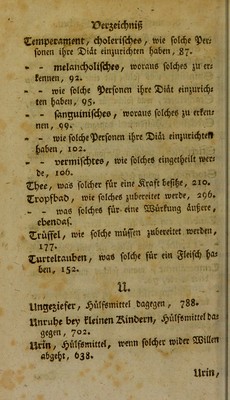 Verzeichniß
Temperament, cholerisches, wie solche Per:
sonen ihre Diät einzurichten haben, 87.
- - melancholisches, woraus solches zu er:
kennen, 92.
- - wie solche Personen ihre Diät einzurich:
ten haben, 95.
- - sanguinisches, woraus solches zu erken:
nen, 99.
- - wie solche Personen ihre Diät einzurichten
haben, 102.
- - vermischtes, wie solches eingetheilt wer:
de, 106.
Thee, was solcher für eine Kraft besitze, 210.
Tropfbad, wie solches zubereitet werde, 296.
- - was solches für eine Würkung äußere,
ebendas.
Trüffel, wie solche müssen zubereitet werden,
177.
Turteltauben, was solche für ein Fleisch ha:
ben, 152.
U.
Ungeziefer, Hülfsmittel dagegen, 788.
Unruhe bey kleinen Kindern, Hülfsmittel da:
gegen, 702.
Urin, Hülfsmittel, wenn solcher wider Willen
abgeht, 638.
Urin,